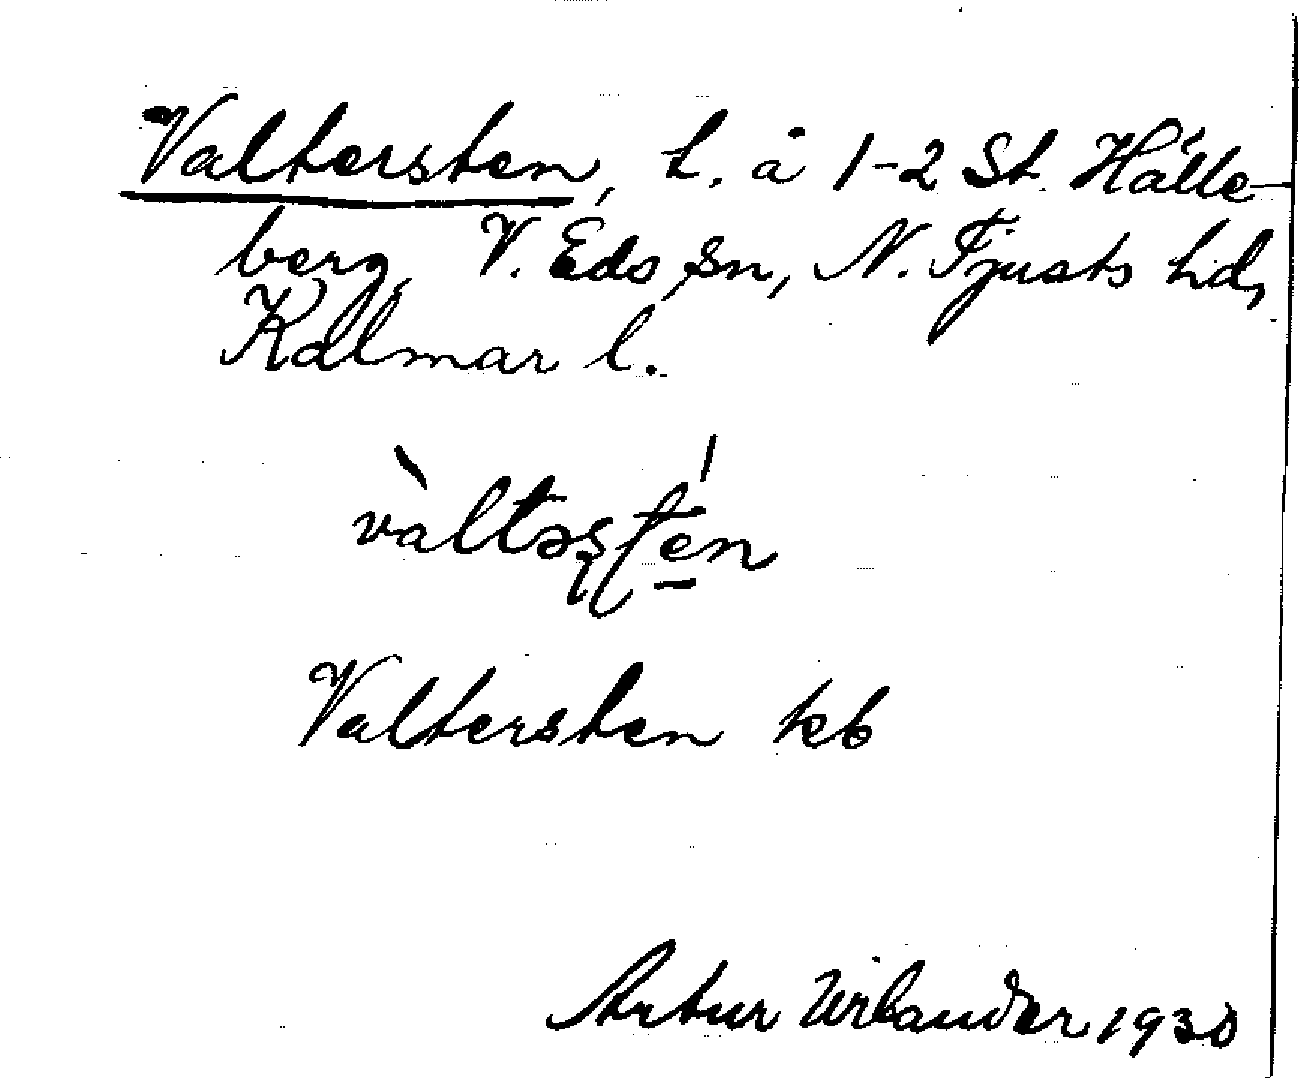 Valtersten, t. å 1-2 St. Hälle-
berg, V. Eds sn, N. Tjusts hd,
Kalmar l.
Valtersten kb
Artur 1930